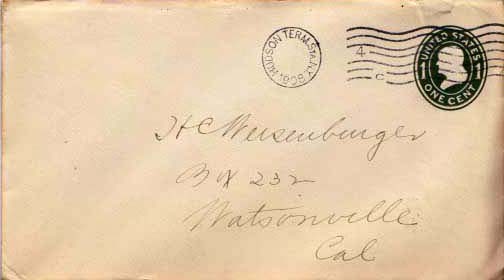 HUDSON TERM. STA. N.Y.
4
C
UNITED STATES
1 1
ONE CENT
H C Weisenburger
Box 232
Watsonville
Cal